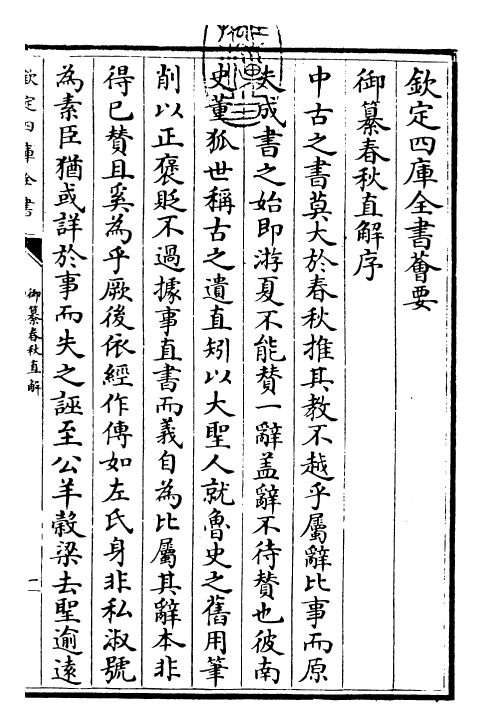 欽定四庫全書薈要
御纂春秋直解序
中古之書莫大於春秋推其教不越乎屬辭比事而原
夫成書之始即游夏不能賛一辭盖辭不待賛也彼南
史董狐世稱古之遺直矧以大聖人就魯史之舊用筆
削以正褒貶不過據事直書而義自為比屬其辭本非
得已賛且奚為乎厥後依經作傳如左氏身非私淑號
為素臣猶或詳於事而失之誣至公羊榖梁去聖逾逺
欽定四庫全書
御纂春秋直解
一